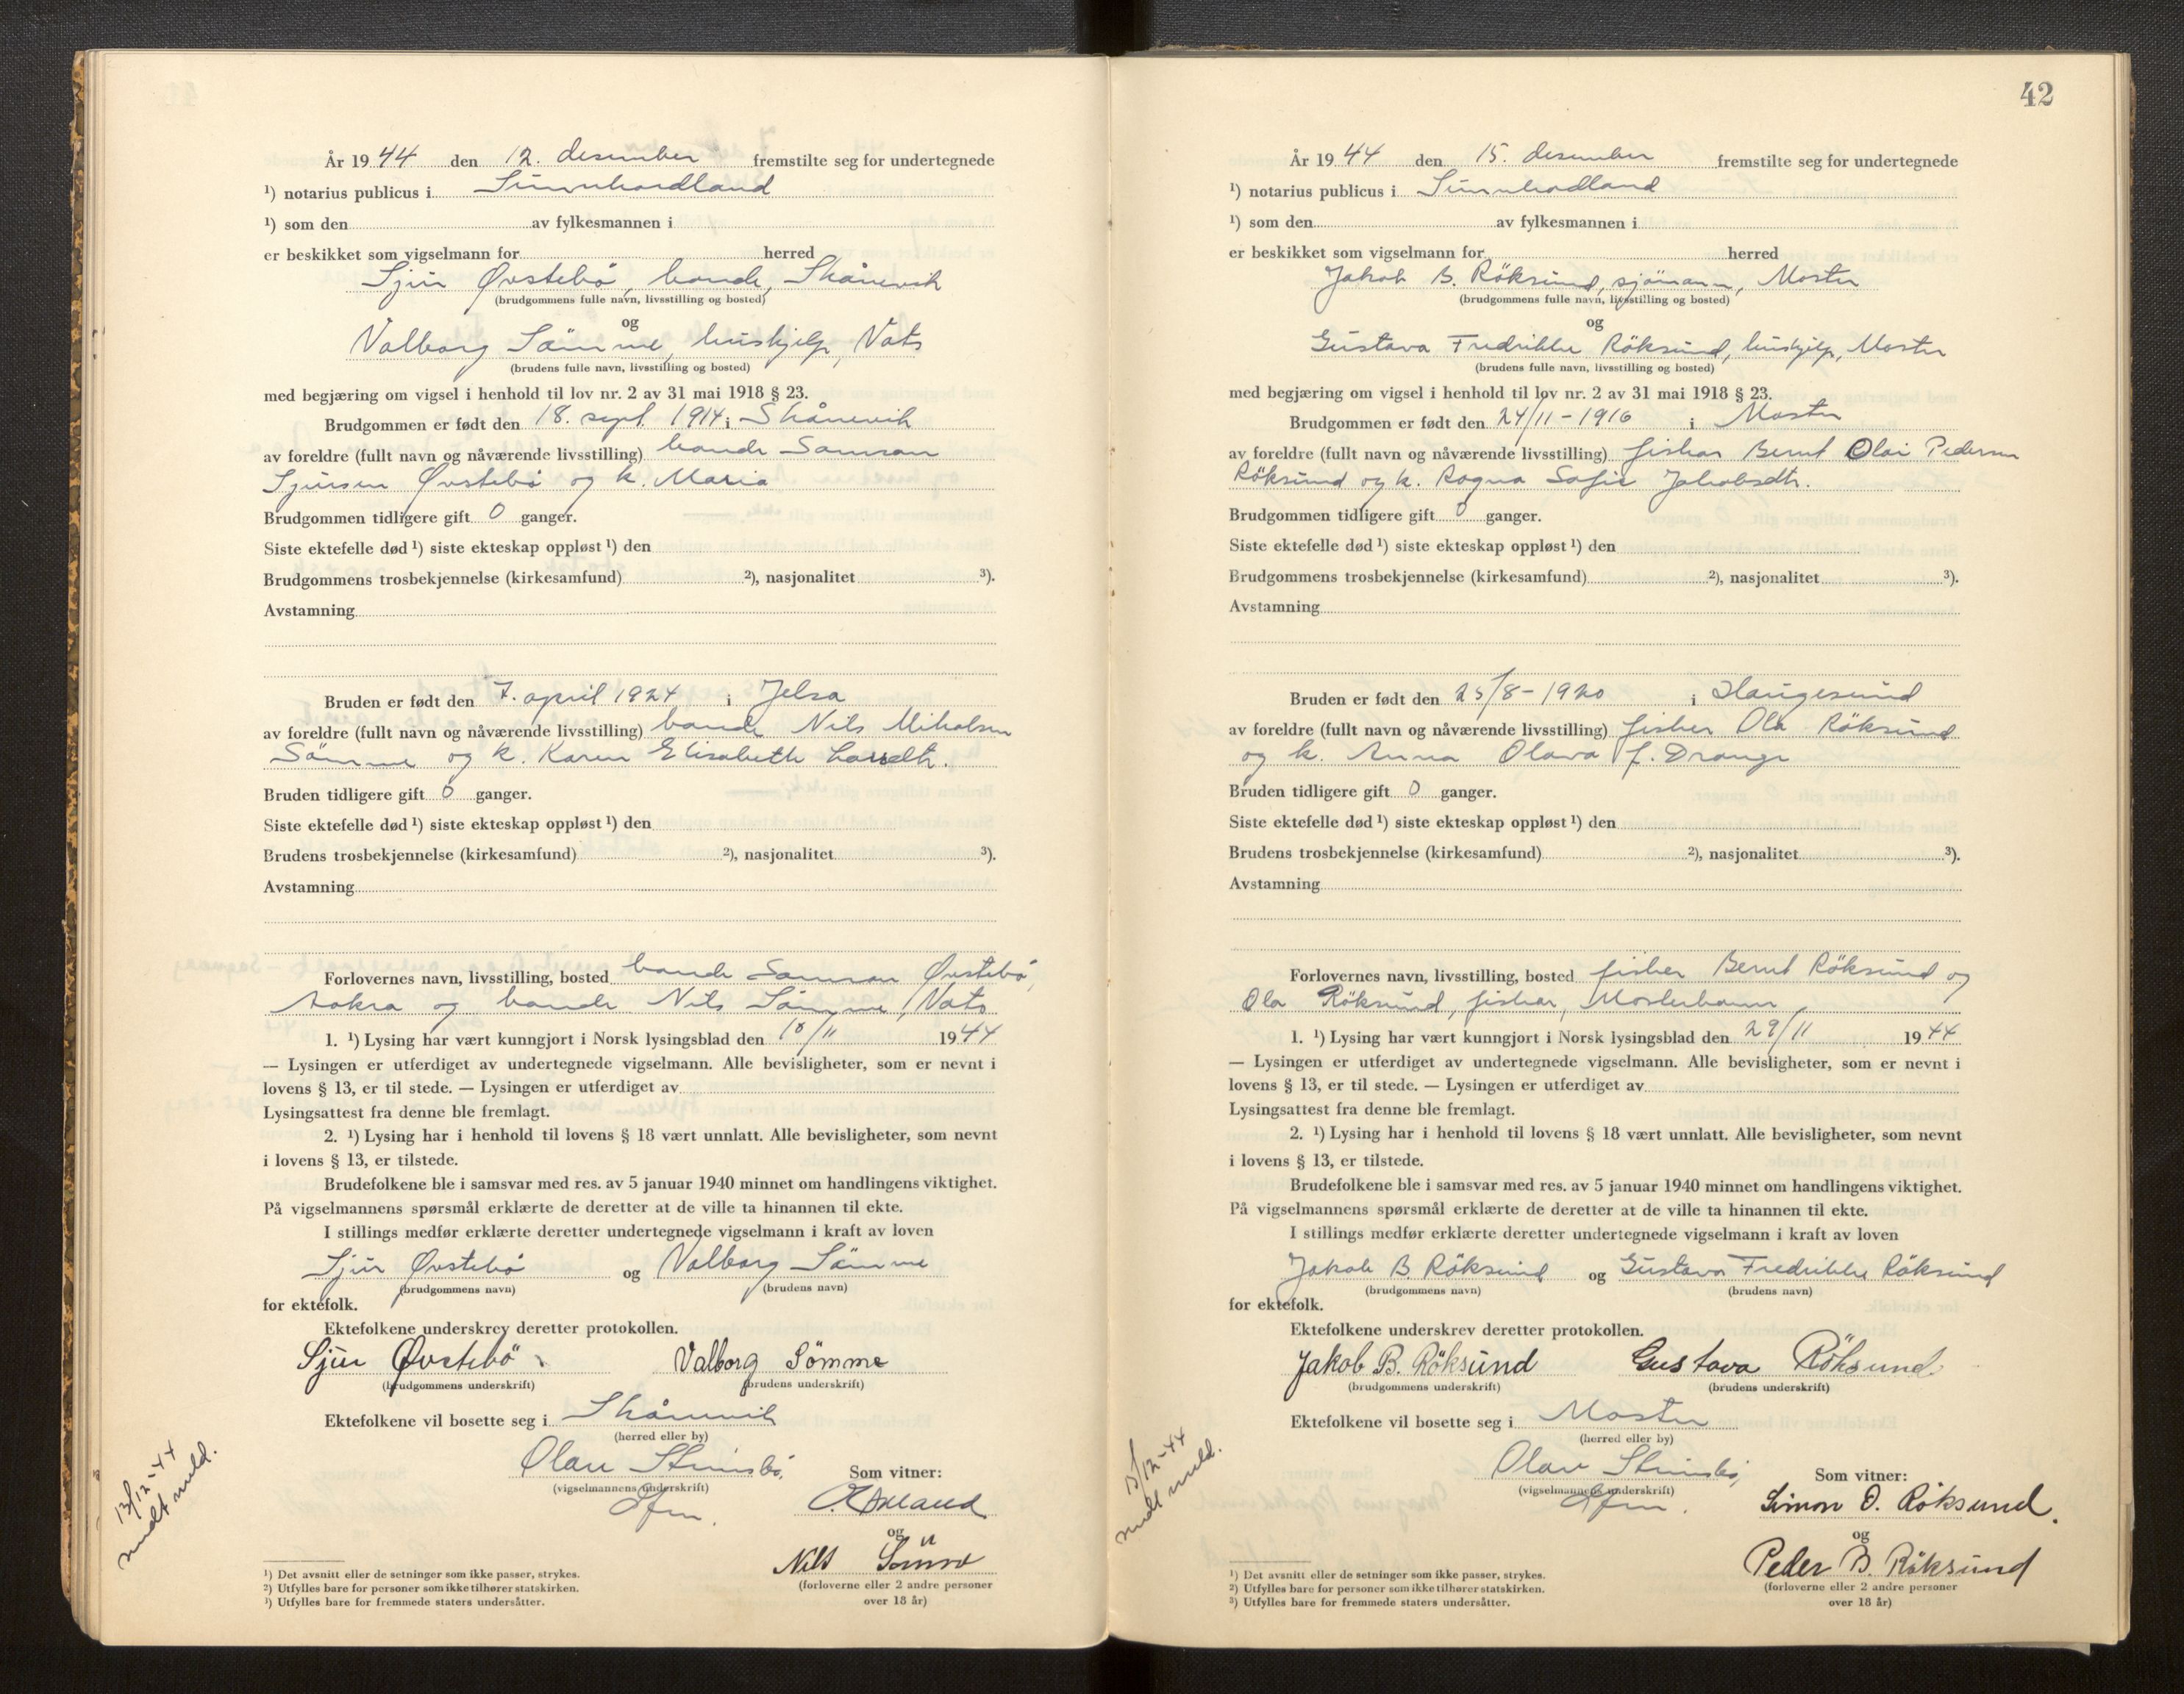 År 1944 den 12. desember fremstilte seg for undertegnede
¹) notarius publicus i Sunnhordland
¹) som den av fylkesmannen i
er beskikket som vigselmann for herred
Sjur Øvstebö, bonde, Skånevik
(brudgommens fulle navn, livsstilling og bosted)
og
Valborg Sömme, hushjelp, Vats
(brudens fulle navn, livsstilling og bosted)
med begjæring om vigsel i henhold til lov nr. 2 av 31 mai 1918 § 23.
Brudgommen er født den 18. sept. 1914 i Skånevik
av foreldre (fullt navn og nåværende livsstilling) bonde Samson
Sjursen Øvstebö og k. Maria
Brudgommen tidligere gift 0 ganger.
Siste ektefelle død ¹) siste ekteskap oppløst ¹) den
Brudgommens trosbekjennelse (kirkesamfund) ²), nasjonalitet ³).
Avstamning
Bruden er født den 7. april 1924 i Jelsa
av foreldre (fullt navn og nåværende livsstilling) bonde Nils Mikalsen
Sömme og k. Karen Elisabeth Larsdtr.
Bruden tidligere gift 0 ganger.
Siste ektefelle død ¹) siste ekteskap oppløst ¹) den
Brudens trosbekjennelse (kirkesamfund) ²), nasjonalitet ³).
Avstamning
Forlovernes navn, livsstilling, bosted bonde Samson Øvstebö,
Aakra og bonde Nils Sömme, Vats
1. ¹) Lysing har vært kunngjort i Norsk lysingsblad den 18/11 1944
— Lysingen er utferdiget av undertegnede vigselmann. Alle bevisligheter, som er nevnt i
lovens § 13, er til stede. — Lysingen er utferdiget av
Lysingsattest fra denne ble fremlagt.
2. ¹) Lysing har i henhold til lovens § 18 vært unnlatt. Alle bevisligheter, som nevnt
i lovens § 13, er tilstede.
Brudefolkene ble i samsvar med res. av 5 januar 1940 minnet om handlingens viktighet.
På vigselmannens spørsmål erklærte de deretter at de ville ta hinannen til ekte.
I stillings medfør erklærte deretter undertegnede vigselmann i kraft av loven
Sjur Øvstebö og Valborg Sömme
(brudgommens navn) (brudens navn)
for ektefolk.
Ektefolkene underskrev deretter protokollen.
Sjur Øvstebö Valborg Sömme
(brudgommens underskrift) (brudens underskrift)
Ektefolkene vil bosette seg i Skånevik
(herred eller by)
Olav
(vigselmannens underskrift)
Som vitner:
og
Nils Sömme
(forloverne eller 2 andre personer
over 18 år)
13/12-44
sendt meld.
¹) Det avsnitt eller de setninger som ikke passer, strykes.
²) Utfylles bare for personer som ikke tilhører statskirken.
³) Utfylles bare for fremmede staters undersåtter.
42
År 1944 den 15. desember fremstilte seg for undertegnede
¹) notarius publicus i Sunnhordland
¹) som den av fylkesmannen i
er beskikket som vigselmann for herred
Jakob B. Röksund, sjömann, Moster
(brudgommens fulle navn, livsstilling og bosted)
og
Gustava Fredrikke Röksund, hushjelp, Moster
(brudens fulle navn, livsstilling og bosted)
med begjæring om vigsel i henhold til lov nr. 2 av 31 mai 1918 § 23.
Brudgommen er født den 24/11-1916 i Moster
av foreldre (fullt navn og nåværende livsstilling) fisker Bernt Olai Pedersen
Röksund og k. Ragna Sofie Jakobsdtr.
Brudgommen tidligere gift 0 ganger.
Siste ektefelle død ¹) siste ekteskap oppløst ¹) den
Brudgommens trosbekjennelse (kirkesamfund) ²), nasjonalitet ³).
Avstamning
Bruden er født den 25/8-1920 i Haugesund
av foreldre (fullt navn og nåværende livsstilling) fisker Ola Röksund
og k. Anna Olava f. Drange
Bruden tidligere gift 0 ganger.
Siste ektefelle død ¹) siste ekteskap oppløst ¹) den
Brudens trosbekjennelse (kirkesamfund) ²), nasjonalitet ³).
Avstamning
Forlovernes navn, livsstilling, bosted fisker Bernt Röksund og
Ola Röksund, fisker, Mosterhamn
1. ¹) Lysing har vært kunngjort i Norsk lysingsblad den 29/11 1944
— Lysingen er utferdiget av undertegnede vigselmann. Alle bevisligheter, som er nevnt i
lovens § 13, er til stede. — Lysingen er utferdiget av
Lysingsattest fra denne ble fremlagt.
2. ¹) Lysing har i henhold til lovens § 18 vært unnlatt. Alle bevisligheter, som nevnt
i lovens § 13, er tilstede.
Brudefolkene ble i samsvar med res. av 5 januar 1940 minnet om handlingens viktighet.
På vigselmannens spørsmål erklærte de deretter at de ville ta hinannen til ekte.
I stillings medfør erklærte deretter undertegnede vigselmann i kraft av loven
Jakob B. Röksund og Gustava Fredrikke Röksund
(brudgommens navn) (brudens navn)
for ektefolk.
Ektefolkene underskrev deretter protokollen.
Jakob B. Röksund Gustava Röksund
(brudgommens underskrift) (brudens underskrift)
Ektefolkene vil bosette seg i Moster
(herred eller by)
Olav
(vigselmannens underskrift)
Som vitner:
Simon O. Röksund.
og
Peder B. Röksund
(forloverne eller 2 andre personer
over 18 år)
sendt meld.
¹) Det avsnitt eller de setninger som ikke passer, strykes.
²) Utfylles bare for personer som ikke tilhører statskirken.
³) Utfylles bare for fremmede staters undersåtter.